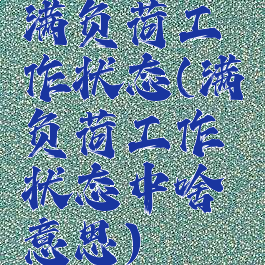 满负荷工
作状态(满
负荷工作
状态中啥
意思)